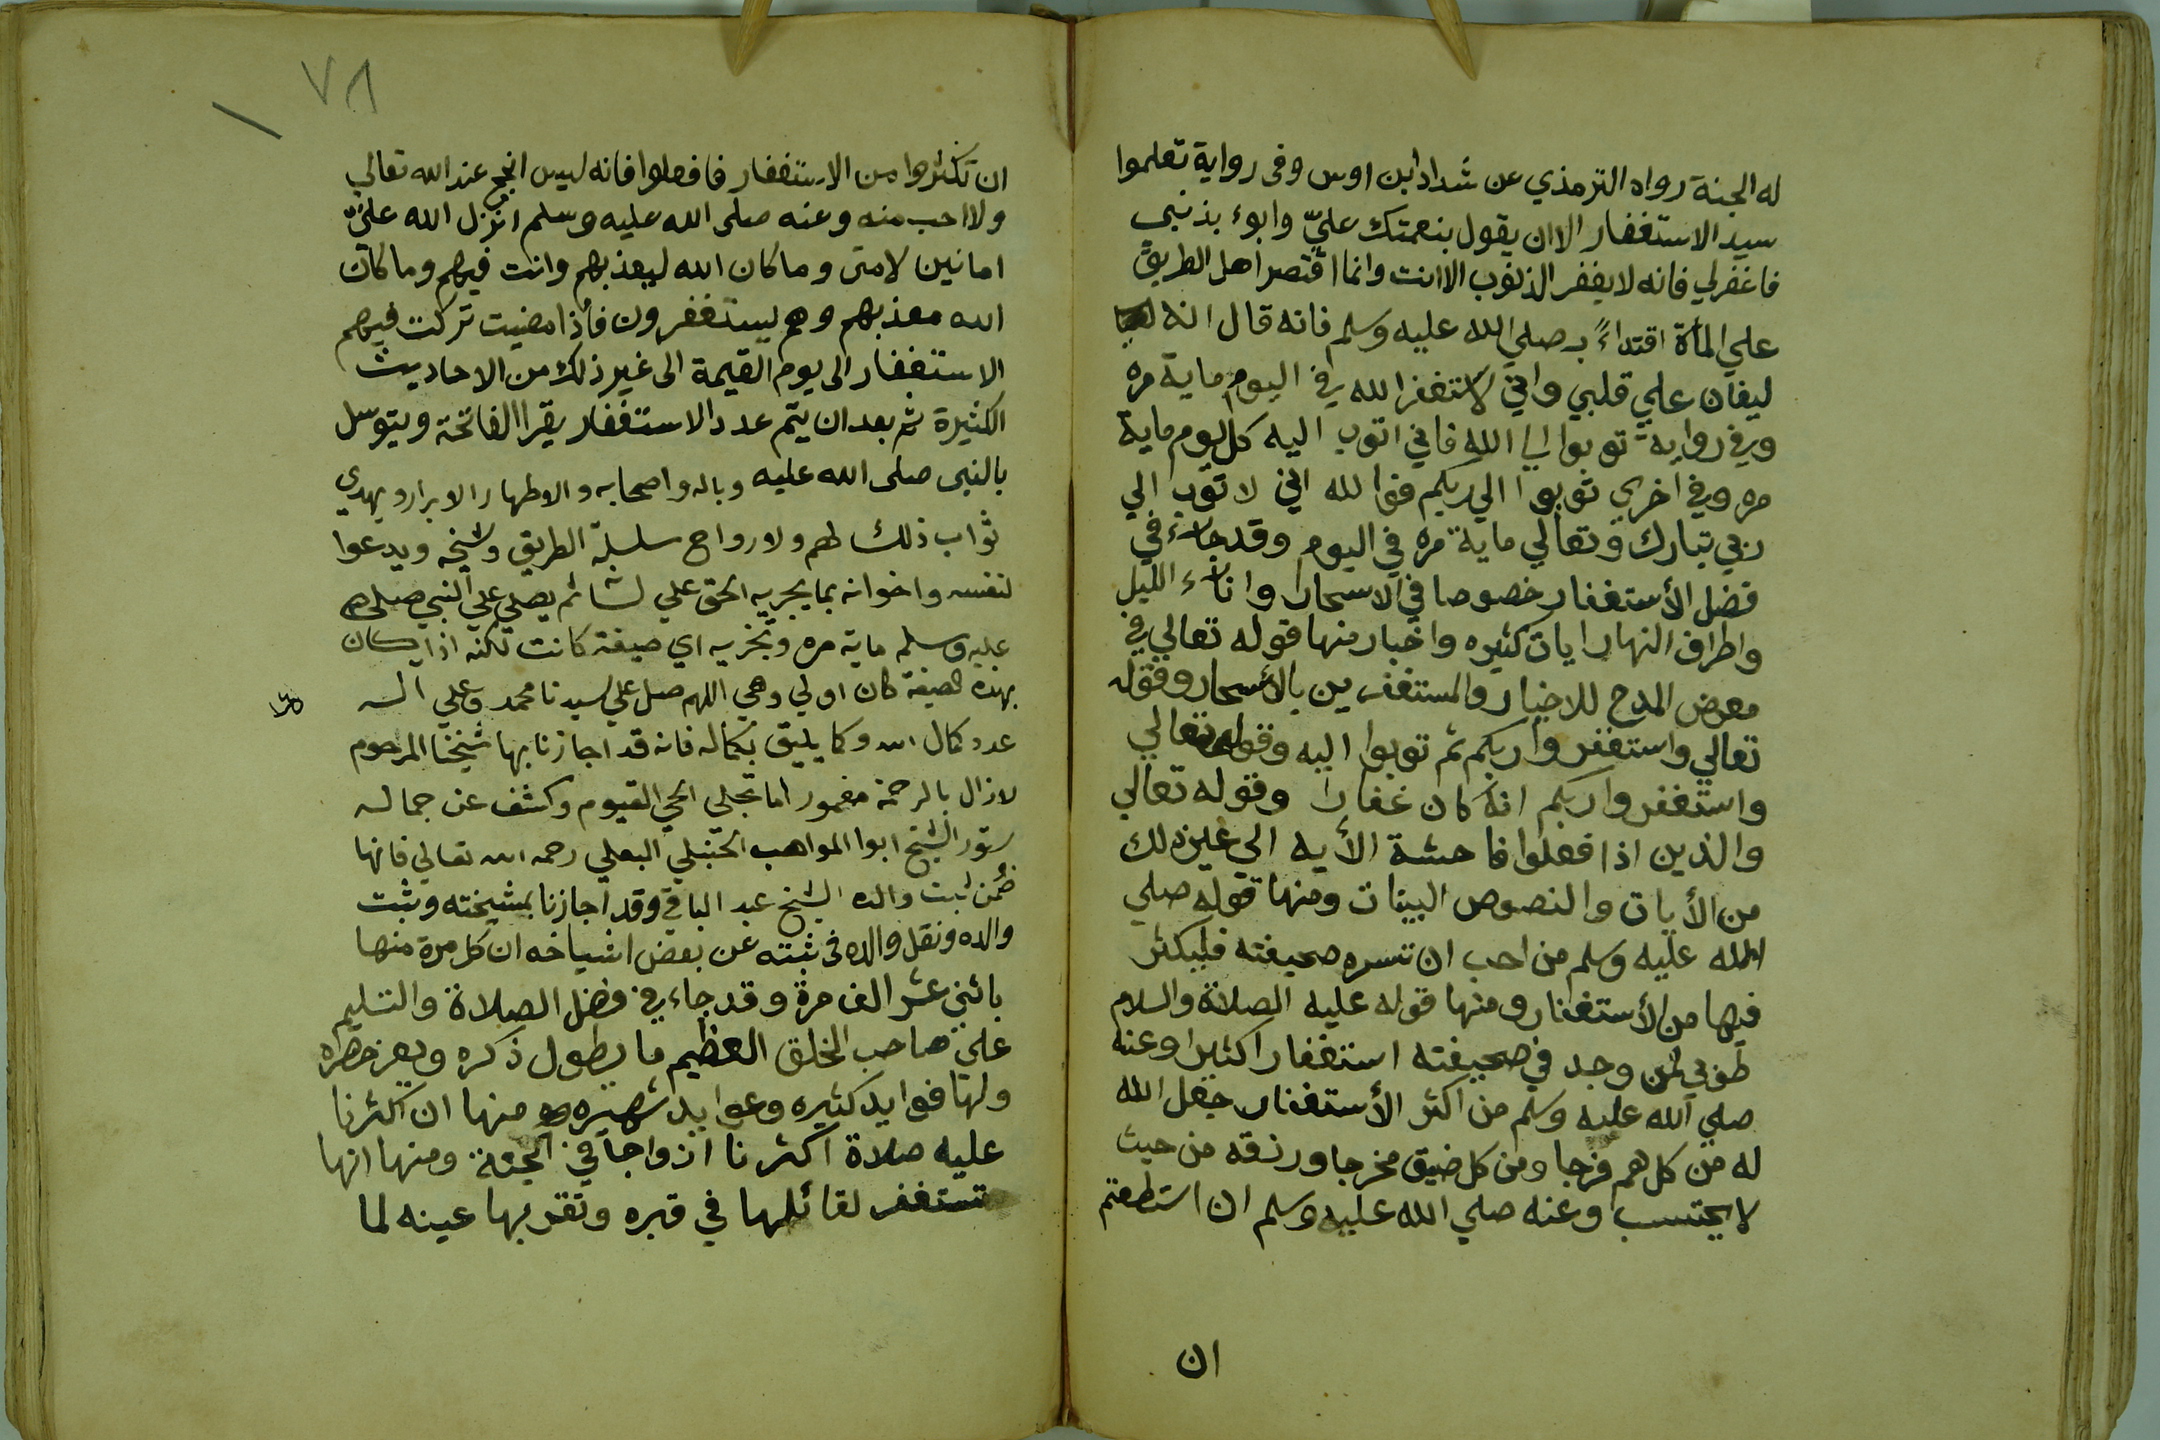 له الجنة رواه الترمذي عن شداد ابن اوس وفى رواية تعلموا
سيد الاستغفار الا ان يقول بنعمتك عليّ وابوء بذنبي
فاغفرلي فانه لا يغفر الذنوب الا انت وانما اقتصر اهل الطريق
علي المأة اقتداءً به صلي الله عليه وسلم فانه قال انه
ليغان علي قلبي واني لاستغفر الله في اليوم ماية مره
وفي رواية توبوا الي الله فاني اتوب اليه كل يوم ماية
مره وفي اخري توبوا الي ربكم فوا لله اني لاتوب الي
ربي تبارك وتعالي ماية مره في اليوم وقد جاء في
فضل الأستغفار خصوصا في الاسحار وا ناء الليل
واطراف النهار ايات كثيره واخبار منها قوله تعالي في
معرض المدح للاخيار والمستغفرين بالأسحار وقوله
تعالي واستغفروا ربكم ثم توبوا اليه وقوله تعالي
واستغفروا ربكم انه كان غفارا وقوله تعالي
والذين اذا فعلوا فاحشة الأيه الي غير ذلك
من الأيات والنصوص البينات ومنها قوله صلي
الله عليه وسلم من احب ان تسره صحيفته فليكثر
فيها من الأستغفار ومنها قوله عليه الصلاة والسلام
طوبي لمن وجد في صحيفته استغفارا كثيرا وعنه
صلي الله عليه وسلم من اكثر الأستغفار جعل الله
له من كل هم فرجا ومن كل ضيق مخرجا ورزقه من حيث
لا يحتسب وعنه صلي الله عليه وسلم ان استطعتم
ان
٧٨
ان تكثروا من الاستغفار فافعلوا فانه ليس انجح عند الله تعالى
ولا احب منه وعنه صلى الله عليه وسلم انزل الله عليّ
امانين لامتى وما كان الله ليعذبهم وانت فيهم وما كان
الله معذبهم وهم يستغفرون فأذا مضيت تركت فيهم
الاستغفار الى يوم القيمة الى غير ذلك من الاحاديث
الكثيرة ثم بعد ان يتم عدد الاستغفار يقرا الفاتحة ويتوسل
بالنبى صلى الله عليه وباله واصحابه والاطهار الابرار ويهدي
ثواب ذلك لهم ولارواح سلسلة الطريق ولشيخه ويدعوا
لنفسه واخوانه بما يجريه الحق علي لسانه ثم يصلي علي النبي صلى الله
عليه وسلم ماية مره وتجزيه اي صيغة كانت لكنه اذا كان
بهذه الصيغة كان اولي وهي اللهم صل علي سيدنا محمد وعلي اله
عدد كمال الله وكما يليق بكماله فانه قد اجازنا بها شيخنا المرحوم
لازال بالرحمة مغمور اما تجلى الحي القيوم وكشف عن جماله
ستور الشيخ ابوا المواهب الحنبلي البعلي رحمه الله تعالي فانها
ضمن ثبت والده الشيخ عبد الباقي وقد اجازنا بمشيخته وثبت
والده ونقل والده فى ثبته عن بعض اشياخه ان كل مرة منها
باثني عشر الف مرة وقد جاء في فضل الصلاة والتسليم
علي صاحب الخلق العظيم ما يطول ذكره ويعز حصره
ولها فوايد كثيره وعوايد شهيره منها ان اكثرنا
عليه صلاة اكثرنا ازواجا في الجنة ومنها انها
تستغفر لقائلها في قبره وتقر بها عينه لما